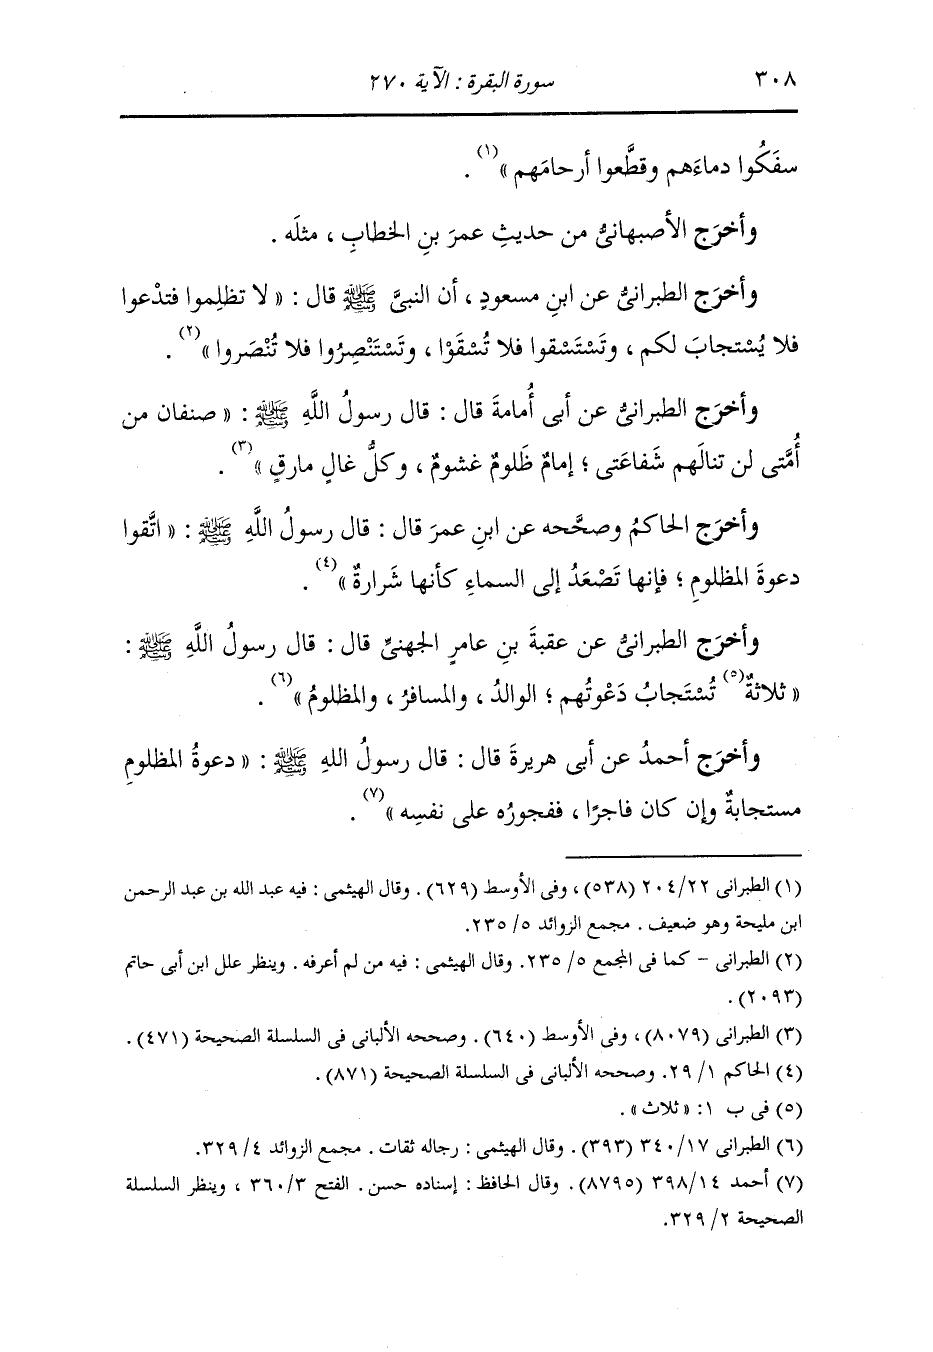 ٣٠٨ سورة البقرة : الآية ٢٧٠
سفَكُوا دماءَهم وقطَّعوا أرحامَهم »(١) .
وأخرَج الأصبهانىُّ من حديثِ عمرَ بنِ الخطابِ ، مثلَه .
وأخرَج الطبرانىُّ عن ابنِ مسعودٍ ، أن النبىَّ ﷺ قال : « لا تظلِموا فتدْعوا
فلا يُسْتجابَ لكم ، وتَسْتَسْقوا فلا تُسْقَوْا ، وتَسْتَنْصِرُوا فلا تُنْصَروا »(٢) .
وأخرَج الطبرانىُّ عن أبى أُمامةَ قال : قال رسولُ اللَّهِ ﷺ : « صنفان من
أُمَّتى لن تنالَهم شَفاعَتى ؛ إمامٌ ظَلومٌ غشومٌ ، وكلُّ غالٍ مارقٍ »(٣) .
وأخرَج الحاكمُ وصحَّحه عن ابنِ عمرَ قال : قال رسولُ اللَّهِ ﷺ : « اتَّقوا
دعوةَ المظلومِ ؛ فإنها تَصْعَدُ إلى السماءِ كأنها شَرارةٌ »(٤) .
وأخرَج الطبرانىُّ عن عقبةَ بنِ عامرٍ الجهنىِّ قال : قال رسولُ اللَّهِ ﷺ :
« ثلاثةٌ(٥) تُسْتَجابُ دَعْوتُهم ؛ الوالدُ ، والمسافرُ ، والمظلومُ »(٦) .
وأخرَج أحمدُ عن أبى هريرةَ قال : قال رسولُ اللهِ ﷺ : « دعوةُ المظلومِ
مستجابةٌ وإن كان فاجرًا ، ففجورُه على نفسِه »(٧) .
(١) الطبرانى ٢٠٤/٢٢ (٥٣٨) ، وفى الأوسط (٦٢٩) . وقال الهيثمى : فيه عبد الله بن عبد الرحمن
ابن مليحة وهو ضعيف . مجمع الزوائد ٥/ ٢٣٥.
(٢) الطبرانى - كما فى المجمع ٥/ ٢٣٥. وقال الهيثمى : فيه من لم أعرفه . وينظر علل ابن أبى حاتم
(٢٠٩٣) .
(٣) الطبرانى (٨٠٧٩) ، وفى الأوسط (٦٤٠) . وصححه الألبانى فى السلسلة الصحيحة (٤٧١) .
(٤) الحاكم ١/ ٢٩. وصححه الألبانى فى السلسلة الصحيحة (٨٧١) .
(٥) فى ب ١: « ثلاث » .
(٦) الطبرانى ٣٤٠/١٧ (٣٩٣) . وقال الهيثمى : رجاله ثقات . مجمع الزوائد ٤/ ٣٢٩.
(٧) أحمد ٣٩٨/١٤ (٨٧٩٥) . وقال الحافظ : إسناده حسن . الفتح ٣٦٠/٣ ، وينظر السلسلة
الصحيحة ٢/ ٣٢٩.